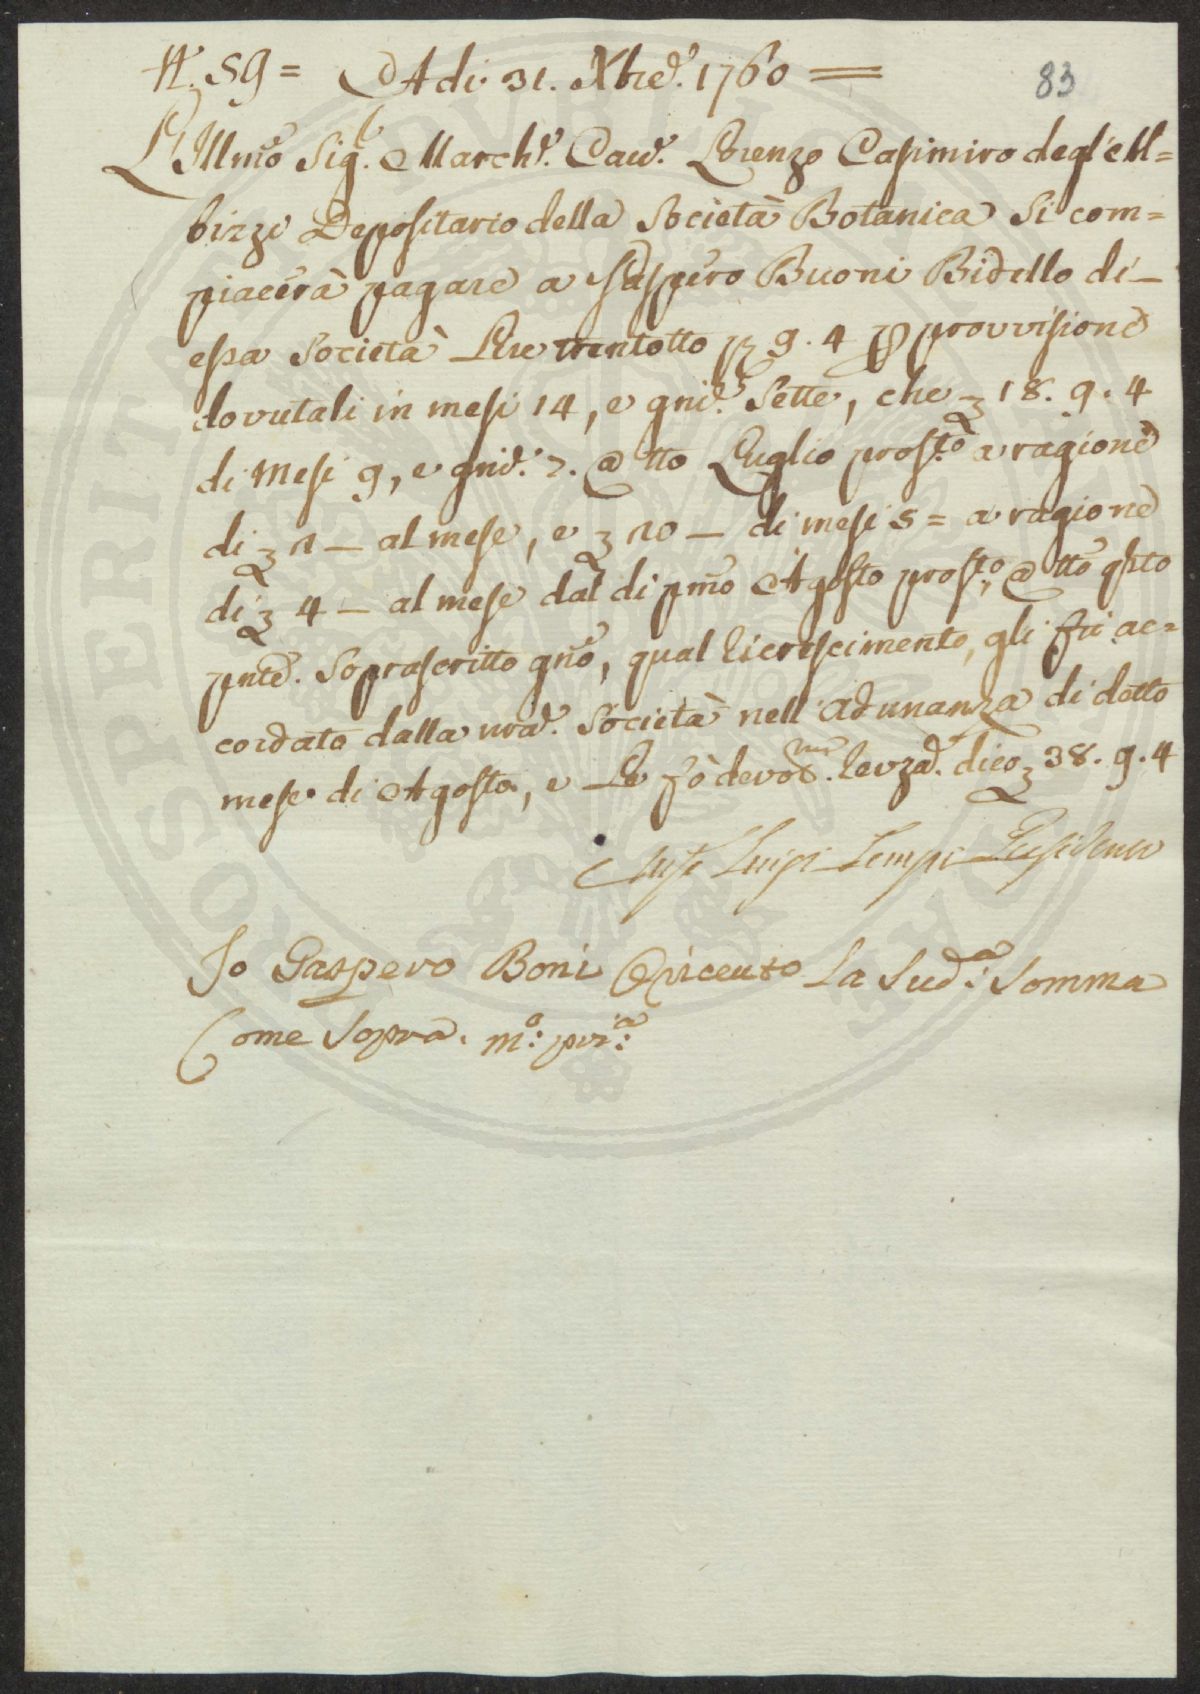 N. 59 = Adi 31. Xbre. 1760 =
83
L'Illmo Sig.r March.e Cav.e Lorenzo Casimiro degl'Al=
bizzi Depositario della Società Botanica si com=
piacerà pagare a Gaspero Buoni Bidello di
essa Società Lire trentotto 9. 4 provvisione
dovutali in mesi 14, e gni. Sette, che 18. 9. 4
di Mesi 9, e gni. 7. a tto Luglio pross.to a ragione
di 2 — al mese, e 20 — di mesi 5 = a ragione
di 4 — al mese dal dì pmo Agosto pross.to, a tto qsto
pnte. Soprascritto gno, qual Ricrescimento, gli fù ac=
cordato dalla nra. Società nell'Adunanza di detto
mese di Agosto, e Le fò devo.ma Revza. dico 38. 9. 4
Luigi Tempi Presidente
Io Gaspero Boni Oriceuto La Sud.a Somma
Come Sopra. m.o pri.a